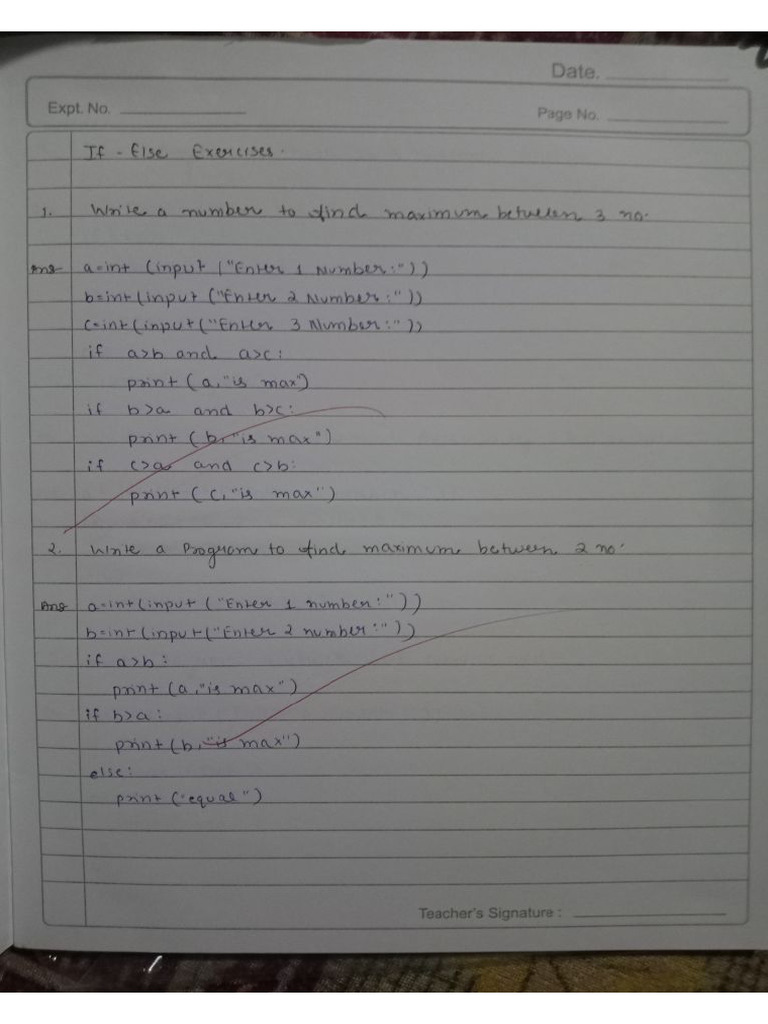 Date.
Expt. No.
Page No.
If - Else Exercises.
1. Write a number to find maximum between 3 no.
Ans a=int (input ("Enter 1 Number:"))
b=int(input ("Enter 2 Number:"))
c=int(input("Enter 3 Number:"))
if a>b and a>c:
print (a,"is max")
if b>a and b>c:
print (b,"is max")
if c>a and c>b:
print (c,"is max")
2. Write a Program to find maximum between 2 no.
Ans a=int(input ("Enter 1 number:"))
b=int(input("Enter 2 number:"))
if a>b:
print (a,"is max")
if b>a:
print (b,"is max")
else:
print ("equal")
Teacher's Signature :